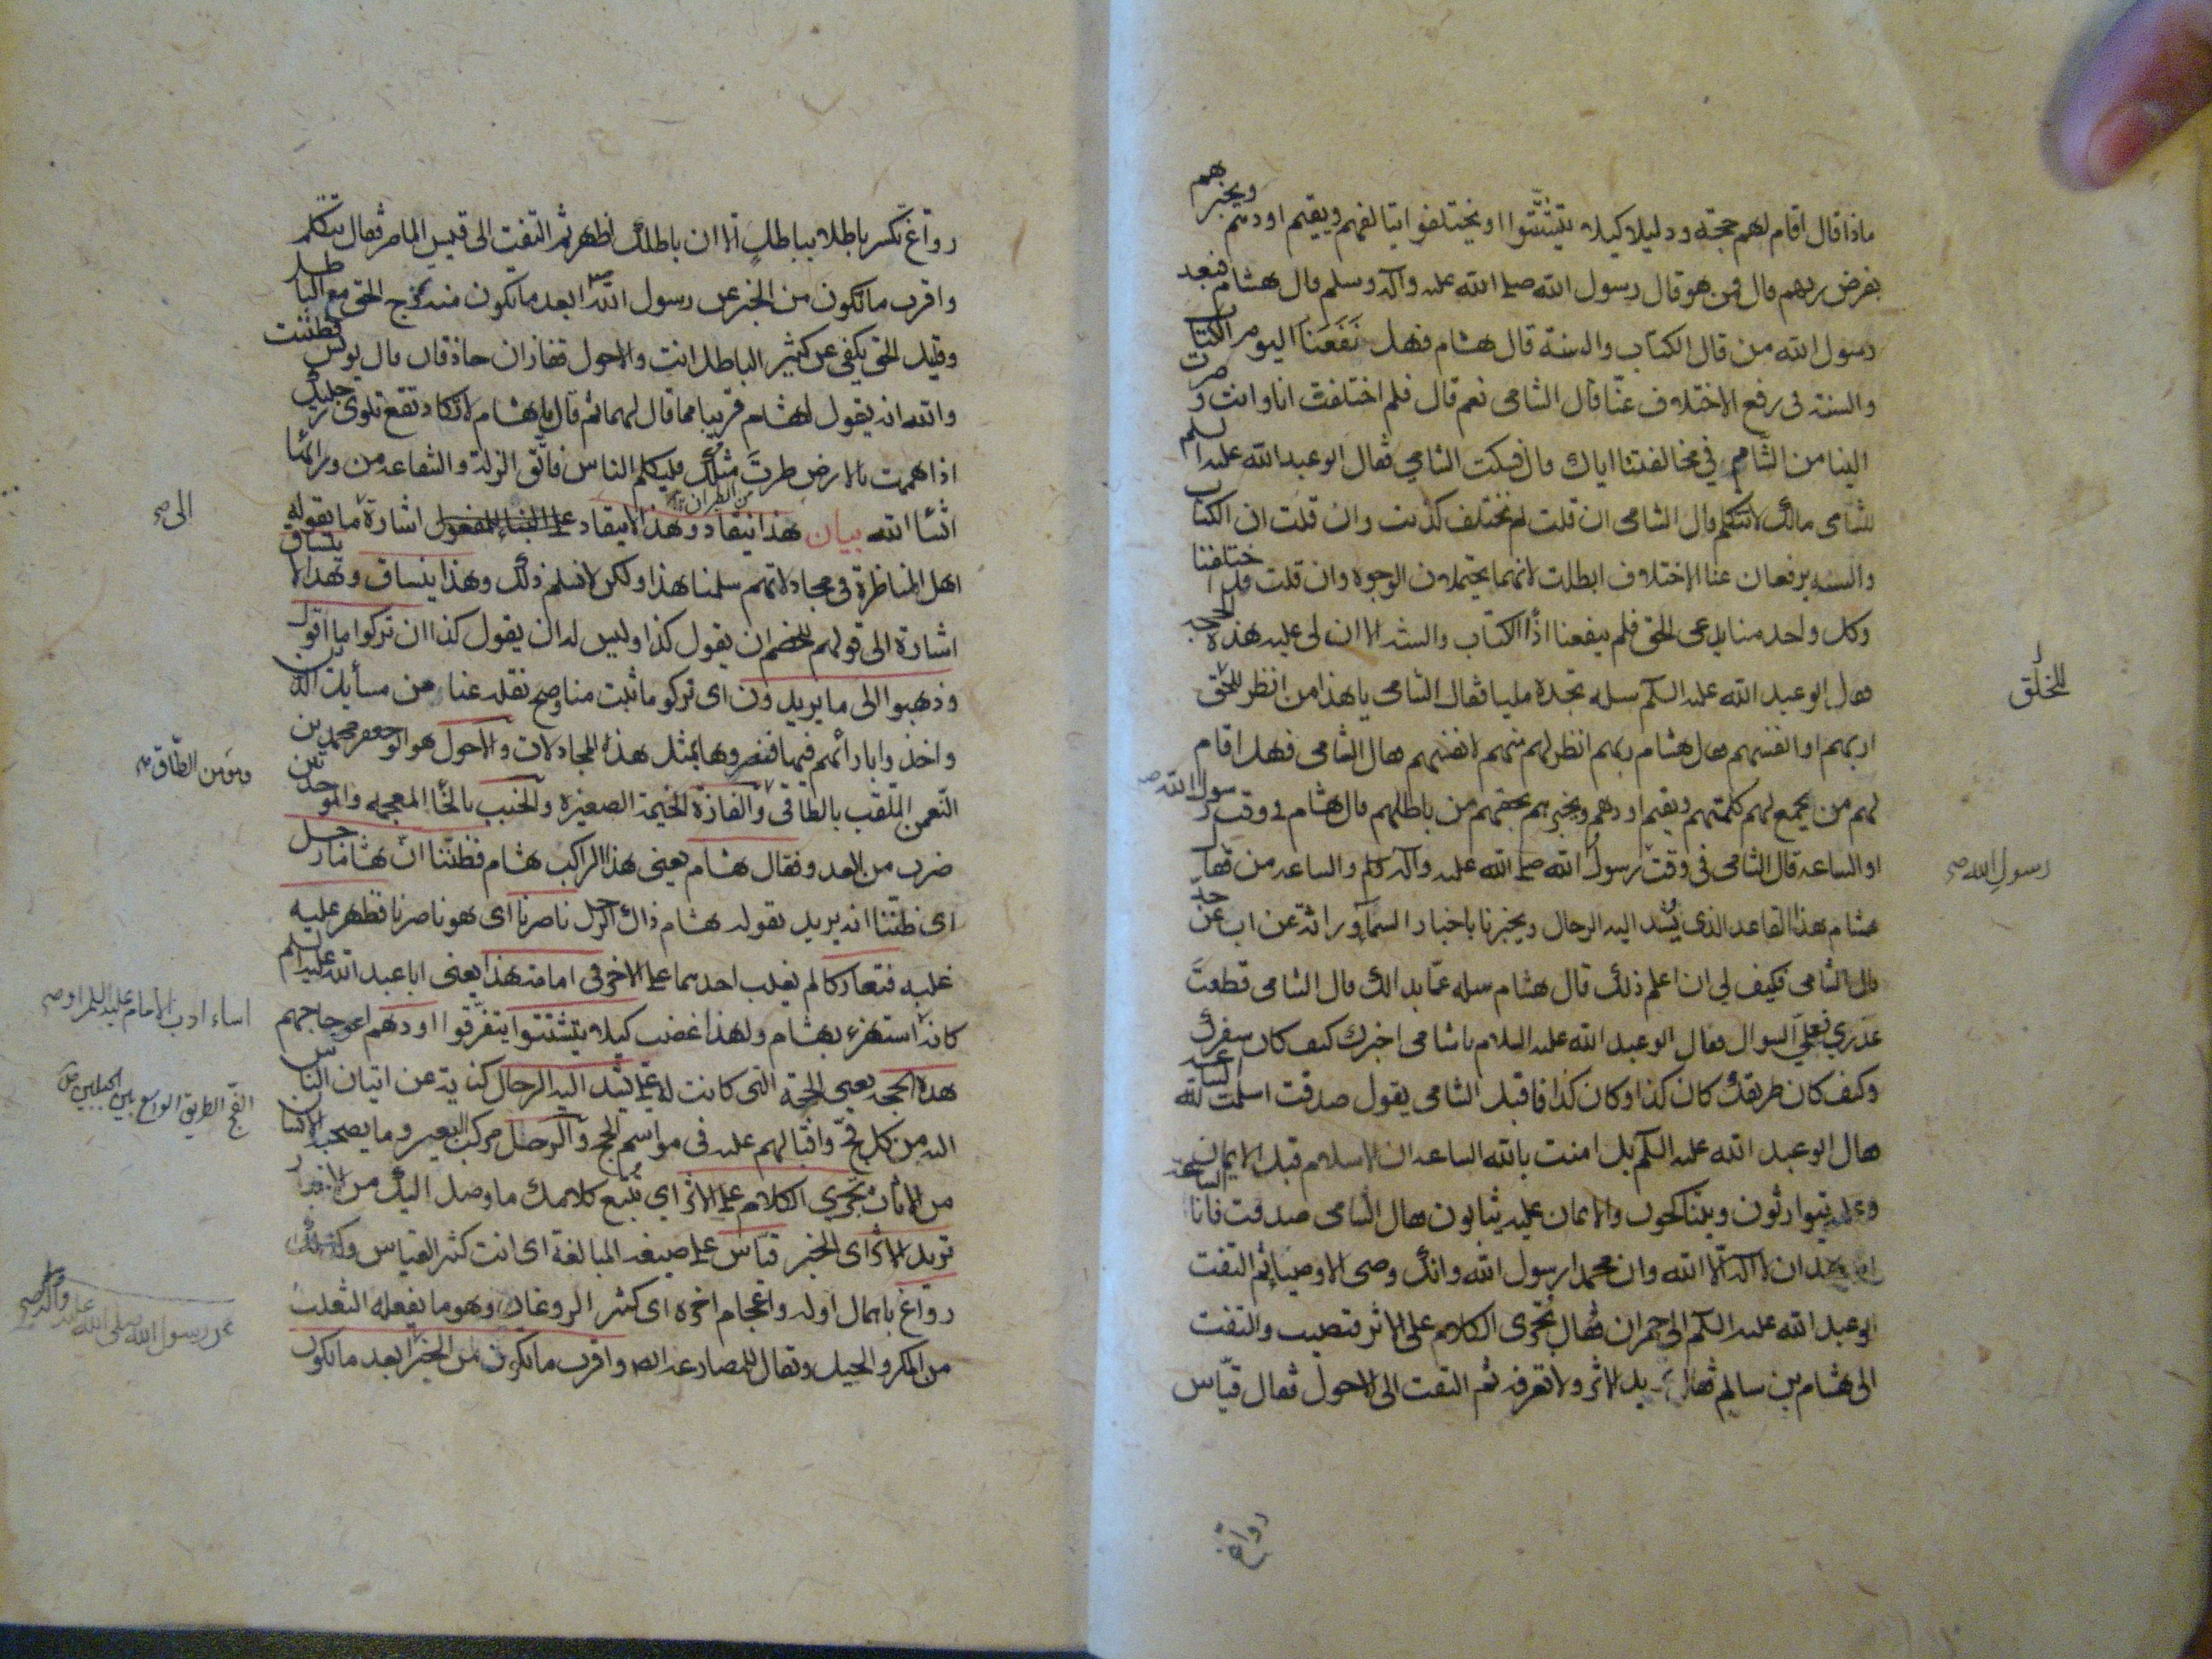 ماذا قال اقام لهم حجّة ودليلا كيلا يتشتتوا او يختلفوا يتالفهم ويقيم اودهم ويخبرهم
بفرض ربهم قال فمن هو قال رسول الله صلى الله عليه وآله وسلم قال هشام فبعد
رسول الله من قال الكتاب والسنة قال هشام فهل نَفَعَنا اليوم الكتاب
والسنة فى رفع الاختلاف عنّا قال الشامى نعم قال فلم اختلفت انا وانت وصرت
الينا من الشام فى مخالفتنا اياك قال فسكت الشامي فقال ابو عبد الله عليه السلم
للشامى مالك لا تتكلم قال الشامى ان قلت لم نختلف كذبت وان قلت ان الكتاب
والسنة يرفعان عنا الاختلاف ابطلت لانهما يحتملان الوجوه وان قلت قد اختلفنا
وكل واحد منا يدعى الحق فلم ينفعنا اذًا الكتاب والسنة الا ان لى عليه هذه الحجة
فقال ابو عبد الله عليه السلم سله تجده مليا فقال الشامى يا هذا من انظر للخلق
اربهم او انفسهم فقال هشام ربهم انظر لهم منهم لانفسهم فقال الشامى فهل اقام
لهم من يجمع لهم كلمتهم ويقيم اودهم ويخبرهم بحقهم من باطلهم قال هشام فى وقت رسول الله ص
او الساعة قال الشامى فى وقت رسول الله صلى الله عليه وآله وسلم والساعة من فقال
هشام هذا القاعد الذى يُشد اليه الرحال ويخبرنا باخبار السماء وراثة عن اب عن جدّ
قال الشامى فكيف لي ان اعلم ذلك قال هشام سله عمّا بدا لك قال الشامى قطعتَ
عذري فعليّ السوال فقال ابو عبد الله عليه السلام يا شامى اخبرك كيف كان سفرك
وكيف كان طريقك كان كذا وكان كذا فاقبل الشامى يقول صدقت اسلمت لله الساعة
فقال ابو عبد الله عليه السلم بل امنت بالله الساعة ان الاسلام قبل الايمان
وعليه يتوارثون ويتناكحون والايمان عليه يثابون فقال الشامى صدقت فانا الساعة
اشهد ان لا اله الّا الله وان محمدا رسول الله وانك وصى الاوصياء ثم التفت
ابو عبد الله عليه السلم الى حمران فقال تجرى الكلام على الاثر فتصيب والتفت
الى هشام بن سالم فقال تريد الاثر ولا تعرفه ثم التفت الى الاحول فقال قيّاس
روّاغ
للخلق
رسول الله ص
روّاغ تكسر باطلا بباطلٍ الا ان باطلك اظهر ثم التفت الى قيس الماصر فقال تتكلم
واقرب ما تكون من الخبر عن رسول الله ص ابعد ما تكون منه تمزج الحق مع الباطل
وقليل الحق يكفى عن كثير الباطل انت والاحول قفازان حاذقان قال يونس فظننت
والله انه يقول لهشام قريبا مما قال لهما ثم قال يا هشام لا تكاد تقع تلوى رجليك
اذا هممت بالارض طرتَ مثلك فليكلم الناس فاتّق الزلة والشفاعة من ورائها
انشا الله بيان هذا ينقاد وهذا لا ينقاد على البناء للمفعول اشارة ما يقوله
من الطيران
اهل المناظرة فى مجادلاتهم سلمنا هذا ولكن لا نسلم ذلك وهذا ينساق وهذا لا ينساق
اشارة الى قولهم للخصم ان يقول كذا وليس له ان يقول كذا ان تركوا ما اقول
وذهبوا الى ما يريدون اى تركو ما ثبت منا وصح نقله عنا من مسائل الدين
واخذوا بارائهم فيها فنصروها بمثل هذه المجادلات والاحول هو ابو جعفر محمد بن
النّعمن الملّقب بالطاقى والفازة الخيمة الصغيرة والخبب بالخاء المعجمة والموحدتين
ضرب من العدو فقال هشام يعنى هذا الراكب هشام فظنّنا انّ هشاما رجل
اى ظنّنا انه يريد بقوله هشام ذاك الرجل ناصرنا اى هو ناصرنا فظهر عليه
غلبه فتعاركا لم يغلب احدهما على الاخر فى امامة هذا يعنى ابا عبد الله عليه السلم
كانه استهزء بهشام ولهذا غضب كيلا يتشتتوا يتفرّقوا اودهم اعوجاجهم
هذه الحجة يعنى الحجة التى كانت له علىّ يشد اليه الرحال كناية عن اتيان الناس
اليه من كل فجّ واقبالهم عليه فى مواسم الحج والرحل مركب البعير وما يصحبه الانسان
من الاثاث تجري الكلام على الاثر اي تُتبع كلامك ما وصل اليك من الاخبار
تريد الاثر اى الخبر قيّاس على صيغة المبالغة اى انت كثير القياس وكذلك
روّاغ باهمال اوله واعجام اخره اى كثير الروغان وهو ما يفعله الثعلب
من المكر والحيل ويقال للمصارعة ايضا واقرب ما تكون من الخبر ابعد ما تكون
الى ص
ومؤمن الطّاق
اساء ادب الامام عليه السلم
الفجّ الطريق الواسع بين الجبلين
عن رسول الله صلى الله عليه وآله